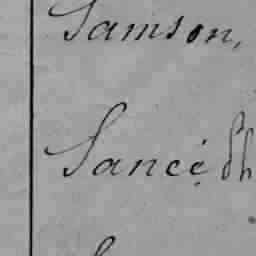 Samson,
Sancé Ph